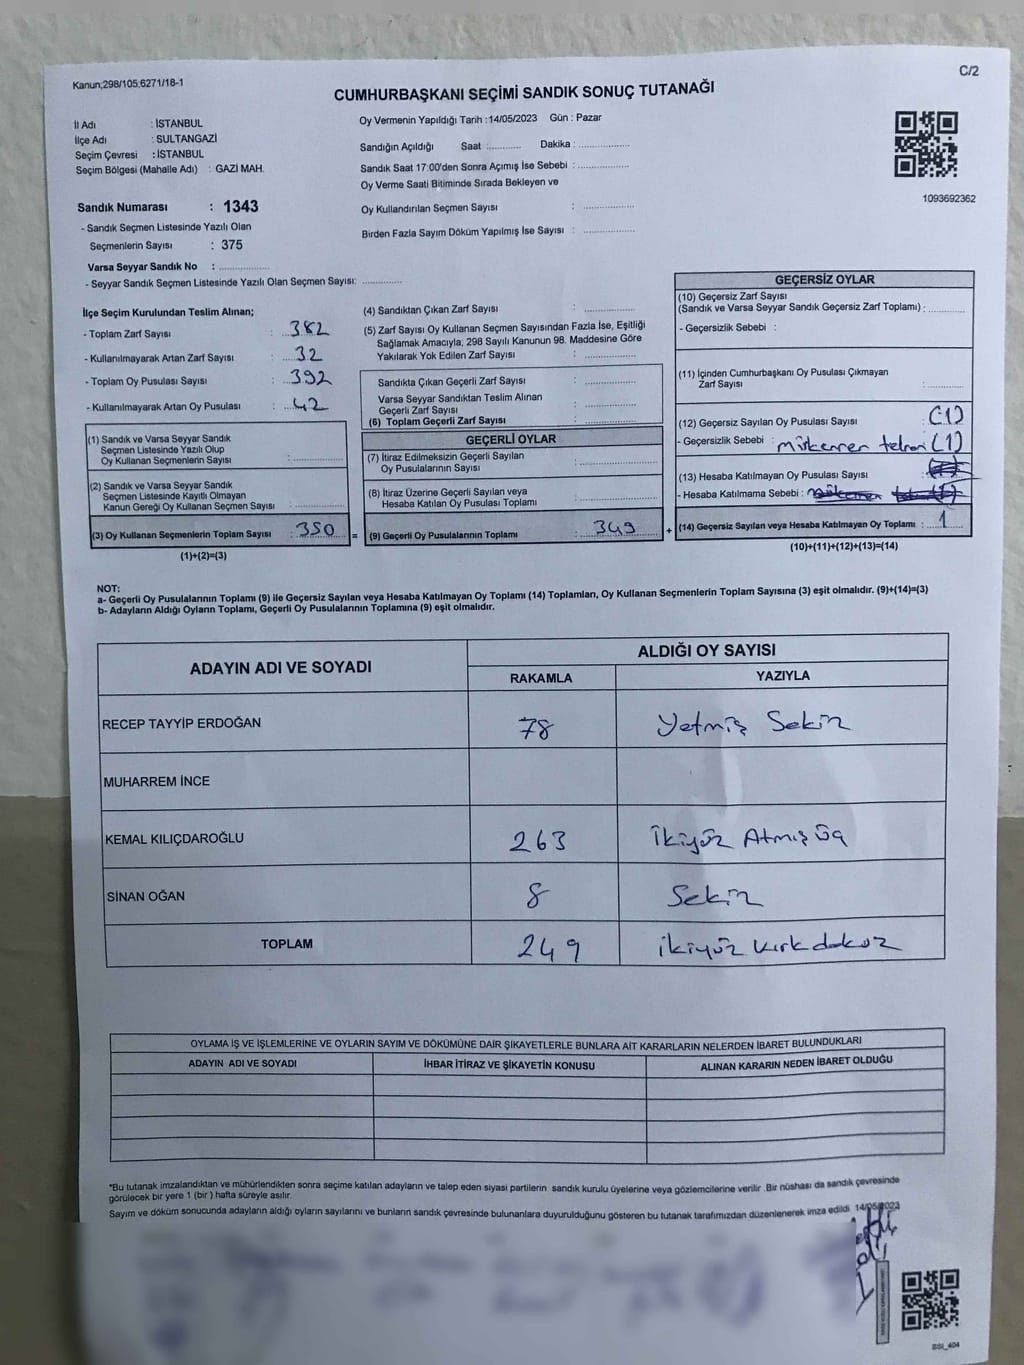 Kanun;298/105;6271/18-1
C/2
CUMHURBAŞKANI SEÇİMİ SANDIK SONUÇ TUTANAĞI
İl Adı : İSTANBUL
İlçe Adı : SULTANGAZİ
Seçim Çevresi : İSTANBUL
Seçim Bölgesi (Mahalle Adı) : GAZİ MAH.
Oy Vermenin Yapıldığı Tarih :14/05/2023 Gün : Pazar
Sandığın Açıldığı Saat :........... Dakika :................
Sandık Saat 17:00'den Sonra Açımış İse Sebebi :................
Oy Verme Saati Bitiminde Sırada Bekleyen ve
Oy Kullandırılan Seçmen Sayısı : ................
Birden Fazla Sayım Döküm Yapılmış İse Sayısı : ................
1093692362
Sandık Numarası : 1343
- Sandık Seçmen Listesinde Yazılı Olan
Seçmenlerin Sayısı : 375
Varsa Seyyar Sandık No : ................
- Seyyar Sandık Seçmen Listesinde Yazılı Olan Seçmen Sayısı: ............
İlçe Seçim Kurulundan Teslim Alınan;
- Toplam Zarf Sayısı : 382
- Kullanılmayarak Artan Zarf Sayısı : 32
- Toplam Oy Pusulası Sayısı : 392
- Kullanılmayarak Artan Oy Pusulası : 42
(1) Sandık ve Varsa Seyyar Sandık
Seçmen Listesinde Yazılı Olup
Oy Kullanan Seçmenlerin Sayısı : ................
(2) Sandık ve Varsa Seyyar Sandık
Seçmen Listesinde Kayıtlı Olmayan
Kanun Gereği Oy Kullanan Seçmen Sayısı : ............
(3) Oy Kullanan Seçmenlerin Toplam Sayısı : 350 =
(1)+(2)=(3)
(4) Sandıktan Çıkan Zarf Sayısı : ................
(5) Zarf Sayısı Oy Kullanan Seçmen Sayısından Fazla İse, Eşitliği
Sağlamak Amacıyla, 298 Sayılı Kanunun 98. Maddesine Göre
Yakılarak Yok Edilen Zarf Sayısı : ................
Sandıkta Çıkan Geçerli Zarf Sayısı : ................
Varsa Seyyar Sandıktan Teslim Alınan
Geçerli Zarf Sayısı : ................
(6) Toplam Geçerli Zarf Sayısı : ................
GEÇERLİ OYLAR
(7) İtiraz Edilmeksizin Geçerli Sayılan
Oy Pusulalarının Sayısı : ................
(8) İtiraz Üzerine Geçerli Sayılan veya
Hesaba Katılan Oy Pusulası Toplamı : ................
(9) Geçerli Oy Pusulalarının Toplamı : 349 +
GEÇERSİZ OYLAR
(10) Geçersiz Zarf Sayısı
(Sandık ve Varsa Seyyar Sandık Geçersiz Zarf Toplamı) : ............
- Geçersizlik Sebebi :
(11) İçinden Cumhurbaşkanı Oy Pusulası Çıkmayan
Zarf Sayısı : ............
(12) Geçersiz Sayılan Oy Pusulası Sayısı (1)
- Geçersizlik Sebebi : (1)
(13) Hesaba Katılmayan Oy Pusulası Sayısı
- Hesaba Katılmama Sebebi :
(14) Geçersiz Sayılan veya Hesaba Katılmayan Oy Toplamı : 1
(10)+(11)+(12)+(13)=(14)
NOT:
a- Geçerli Oy Pusulalarının Toplamı (9) ile Geçersiz Sayılan veya Hesaba Katılmayan Oy Toplamı (14) Toplamları, Oy Kullanan Seçmenlerin Toplam Sayısına (3) eşit olmalıdır. (9)+(14)=(3)
b- Adayların Aldığı Oyların Toplamı, Geçerli Oy Pusulalarının Toplamına (9) eşit olmalıdır.
ADAYIN ADI VE SOYADI
ALDIĞI OY SAYISI
RAKAMLA YAZIYLA
RECEP TAYYİP ERDOĞAN 78 Yetmiş Sekiz
MUHARREM İNCE
KEMAL KILIÇDAROĞLU 263 İkiyüz Atmış Üç
SİNAN OĞAN 8 Sekiz
TOPLAM 249 ikiyüz kırk dokuz
OYLAMA İŞ VE İŞLEMLERİNE VE OYLARIN SAYIM VE DÖKÜMÜNE DAİR ŞİKAYETLERLE BUNLARA AİT KARARLARIN NELERDEN İBARET BULUNDUKLARI
ADAYIN ADI VE SOYADI İHBAR İTİRAZ VE ŞİKAYETİN KONUSU ALINAN KARARIN NEDEN İBARET OLDUĞU
*Bu tutanak imzalandıktan ve mühürlendikten sonra seçime katılan adayların ve talep eden siyasi partilerin sandık kurulu üyelerine veya gözlemcilerine verilir. Bir nüshası da sandık çevresinde
görülecek bir yere 1 (bir ) hafta süreyle asılır.
Sayım ve döküm sonucunda adayların aldığı oyların sayılarını ve bunların sandık çevresinde bulunanlara duyurulduğunu gösteren bu tutanak tarafımızdan düzenlenerek imza edildi. 14/05/2023